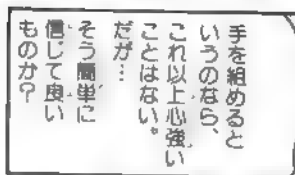 手を組めると
いうのなら、
これ以上心強い
ことはない。
だが…
そう簡単に
信じて良い
ものか？